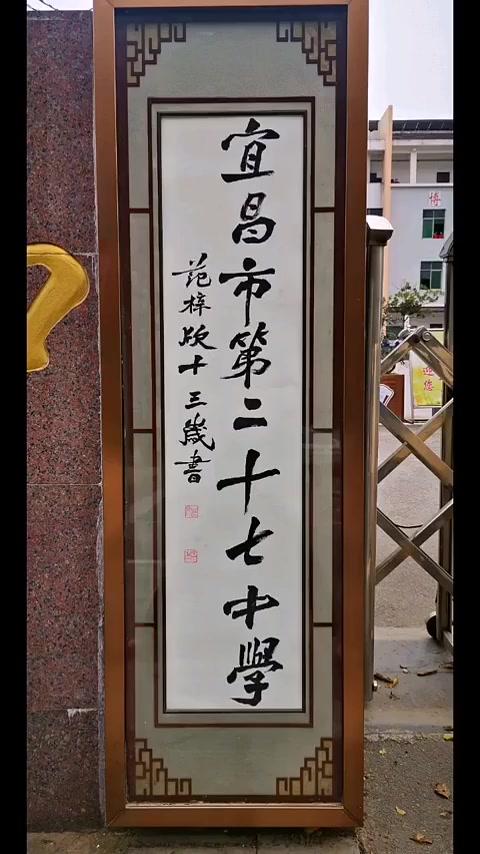 宜昌市第二十七中學
范梓版十三歲書
博
迎您